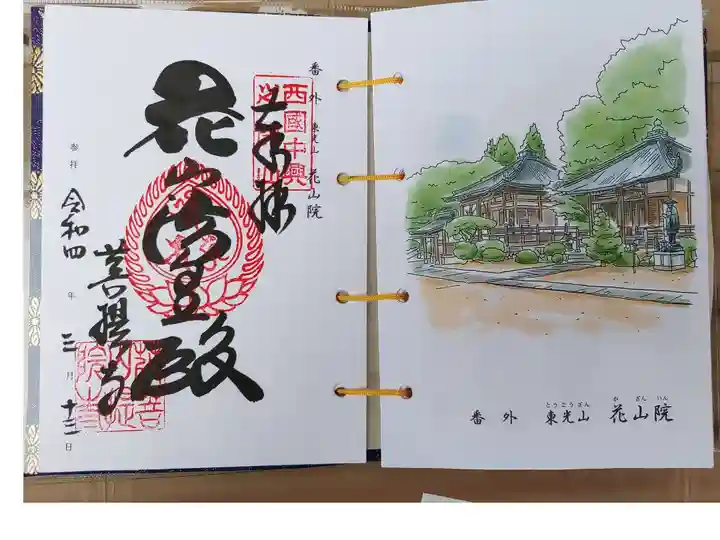 番外 東光山 花山院
奉拝
西國中興
花山法皇殿
菩提寺
参拝 令和四年 三月十三日
とうこうざん か ざん いん
番外 東光山 花山院